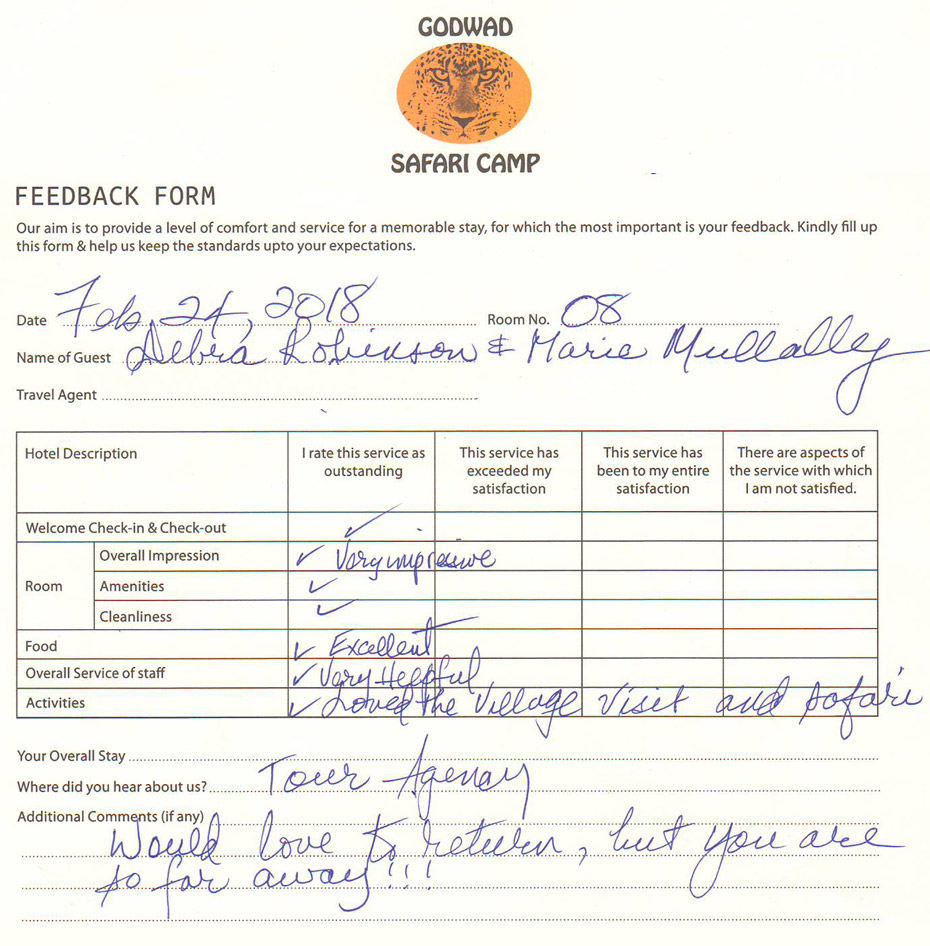 GODWAD
SAFARI CAMP
FEEDBACK FORM
Our aim is to provide a level of comfort and service for a memorable stay, for which the most important is your feedback. Kindly fill up
this form & help us keep the standards upto your expectations.
Date Feb. 24, 2018 Room No. 08
Name of Guest Debra Robinson & Marie Mullally
Travel Agent
Hotel Description I rate this service as outstanding This service has exceeded my satisfaction This service has been to my entire satisfaction There are aspects of the service with which I am not satisfied.
Welcome Check-in & Check-out ✓
Room Overall Impression ✓ Very impressive
Amenities ✓
Cleanliness ✓
Food ✓ Excellent
Overall Service of staff ✓ Very Helpful
Activities ✓ Loved the Village Visit and Safari
Your Overall Stay
Where did you hear about us? Tour Agency
Additional Comments (if any)
Would love to return, but you are
so far away!!!